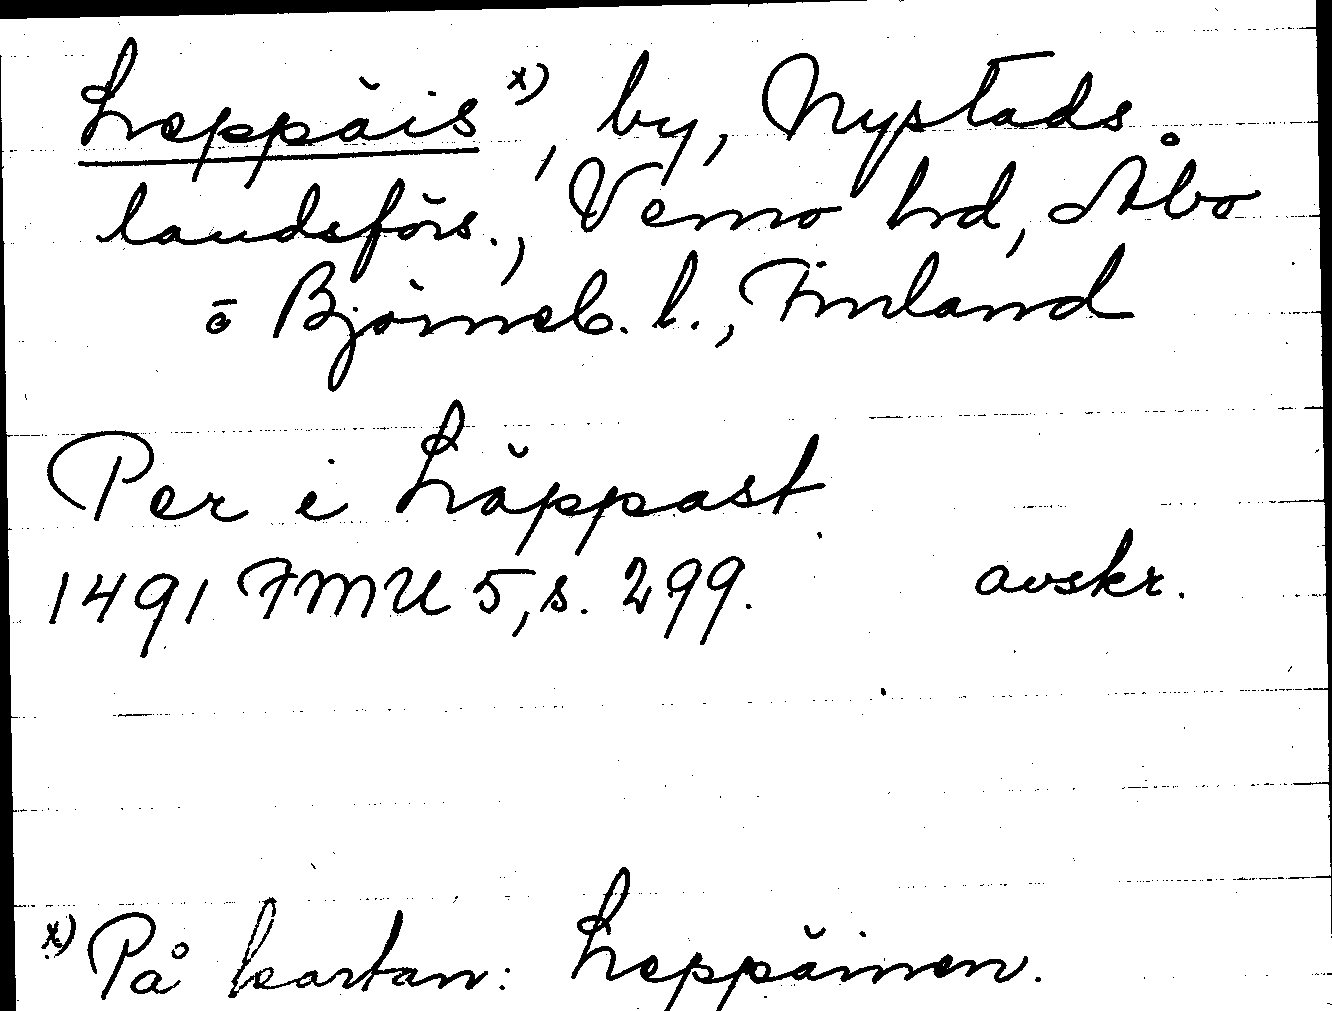 Leppäis x), by, Nystads
landsförs., Vemo hd, Åbo
o Björneb. l., Finland
Per i Läppast
1491 FMU 5, s. 299. avskr.
x) På kartan: Leppäinen.